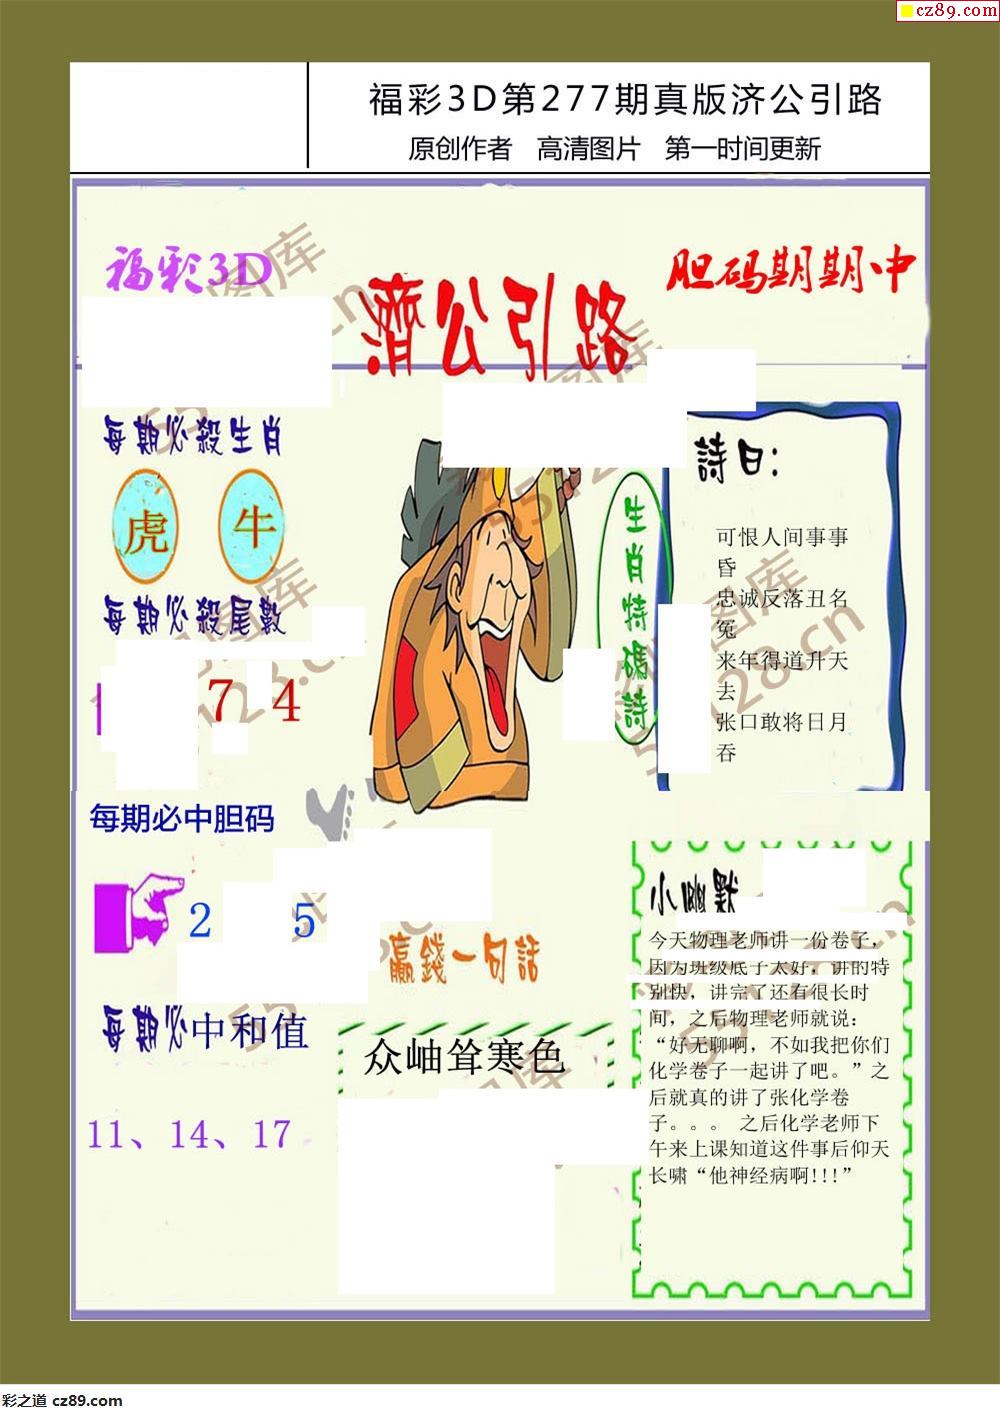 cz89.com
福彩3D第277期真版济公引路
原创作者 高清图片 第一时间更新
福彩3D
濟公引路
胆码期期中
每期必殺生肖
虎 牛
每期必殺尾數
7 4
每期必中胆码
2 5
每期必中和值
11、14、17
生肖特碼詩
詩曰:
可恨人间事事
昏
忠诚反落丑名
冤
来年得道升天
去
张口敢将日月
吞
赢錢一句話
众岫耸寒色
小幽默
今天物理老师讲一份卷子，
因为班级底子太好，讲的特
别快，讲完了还有很长时
间，之后物理老师就说：
“好无聊啊，不如我把你们
化学卷子一起讲了吧。”之
后就真的讲了张化学卷
子。。。 之后化学老师下
午来上课知道这件事后仰天
长啸“他神经病啊!!!”
彩之道 cz89.com